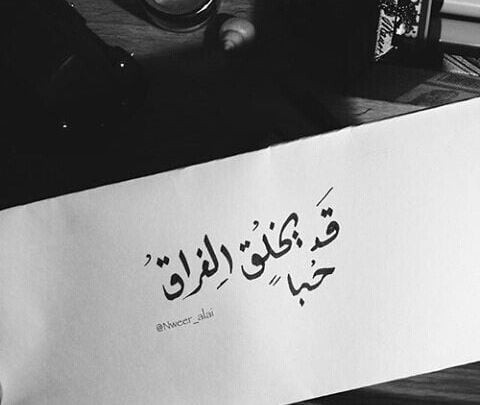 قَد يَخلُق الِفراقُ
حُباً
@Nweer_alai